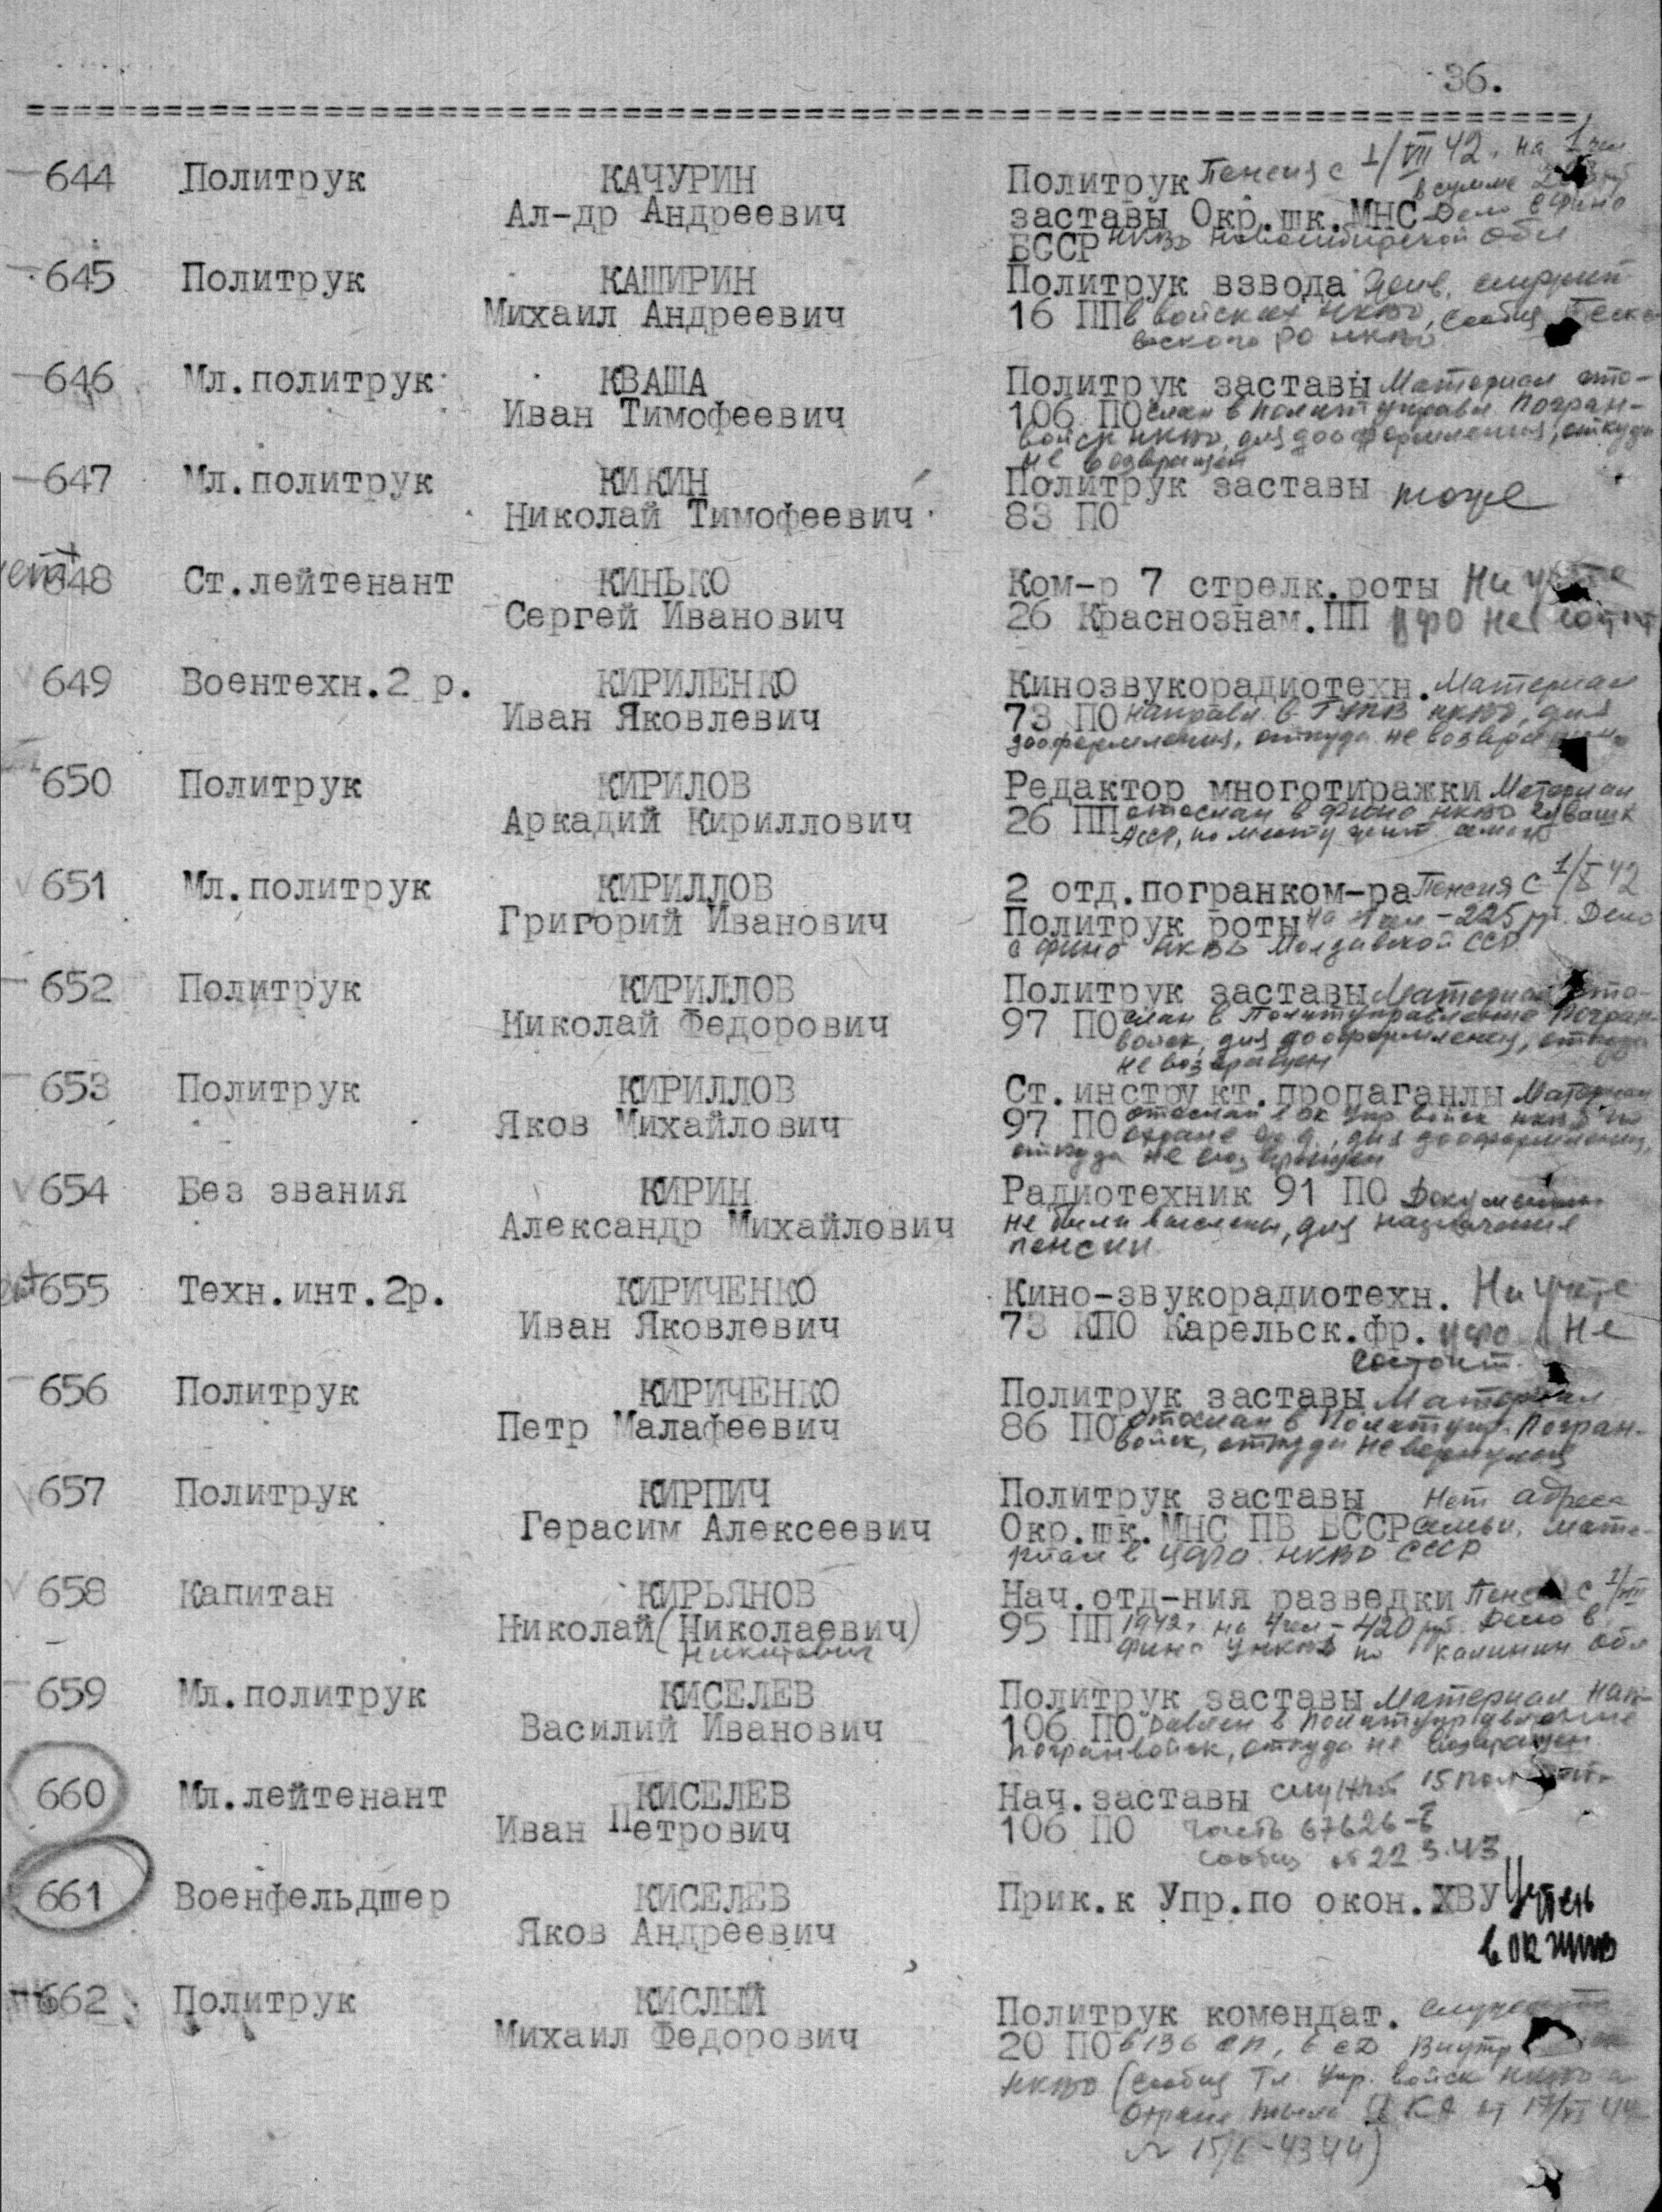 36.
644 Политрук КАЧУРИН Политрук Пенсия с 1/VII 42. на 1 чел
Ал-др Андреевич заставы Окр.шк.МНС в сумме Дело в Фино
БССР НКВД Новосибирской обл
645 Политрук КАШИРИН Политрук взвода
Михаил Андреевич 16 ПП в войсках НКВД, сообщ.
РО НКВД
646 Мл.политрук КВАША Политрук заставы Материал ото-
Иван Тимофеевич 106 ПО слан в Политуправл. Погран-
войск НКВД, для дооформления, откуда
не возвращен
647 Мл.политрук КИКИН Политрук заставы тоже
Николай Тимофеевич 83 ПО
648 Ст.лейтенант КИНЬКО Ком-р 7 стрелк.роты На учете
Сергей Иванович 26 Краснознам.ПП не состоит
649 Воентехн.2 р. КИРИЛЕНКО Кинозвукорадиотехн. Материал
Иван Яковлевич 73 ПО направл. в ГУПВ НКВД, для
дооформления, откуда не возвращен
650 Политрук КИРИЛОВ Редактор многотиражки Материал
Аркадий Кириллович 26 ПП отослан в Фино НКВД Чувашк
АССР, по месту жит. семьи
651 Мл.политрук КИРИЛЛОВ 2 отд.погранком-ра Пенсия с 1/X 42
Григорий Иванович Политрук роты на 1 чел - 225 р. Дело
в Фино НКВД Молдавской ССР
652 Политрук КИРИЛЛОВ Политрук заставы Материал ото-
Николай Федорович 97 ПО слан в Политуправление Погран-
войск, для дооформления, откуда
не возвращен
653 Политрук КИРИЛЛОВ Ст.инструкт.пропаганлы Материал
Яков Михайлович 97 ПО отослан в Упр. войск НКВД по
охране для дооформления,
откуда не возвращен
654 Без звания КИРИН Радиотехник 91 ПО Документы
Александр Михайлович не были высланы, для назначения
пенсии
655 Техн.инт.2р. КИРИЧЕНКО Кино-звукорадиотехн. На учете
Иван Яковлевич 73 КПО Карельск.фр. цфо не
состоит.
656 Политрук КИРИЧЕНКО Политрук заставы Материал
Петр Малафеевич 86 ПО отослан в Политупр. Погран-
войск, откуда не вернулся
657 Политрук КИРПИЧ Политрук заставы Нет адреса
Герасим Алексеевич Окр.шк.МНС ПВ БССР семьи. Мате-
риал в ЦФО НКВД СССР
658 Капитан КИРЬЯНОВ Нач.отд-ния разведки Пенсия с 1/VIII
Николай (Николаевич) 95 ПП 1942г. на 4 чел - 420 руб. Дело в
Никитович Фино УНКВД по Калинин обл
659 Мл.политрук КИСЕЛЕВ Политрук заставы Материал нап-
Василий Иванович 106 ПО равлен в Политуправление
погранвойск, откуда не возвращен
660 Мл.лейтенант КИСЕЛЕВ Нач.заставы служит 15
Иван Петрович 106 ПО часть 67626-Б
сообщ от 22.3.43
661 Военфельдшер КИСЕЛЕВ Прик.к Упр.по окон.ХВУ Учтень
Яков Андреевич в ОК
662 Политрук КИСЛЫЙ Политрук комендат. служит
Михаил Федорович 20 ПО в 136 СП, 6 СД Внутр
НКВД (сообщ Гл. Упр. войск НКВД
охране тыла ДКА от 17/VI 44
№ 15/6-4344)